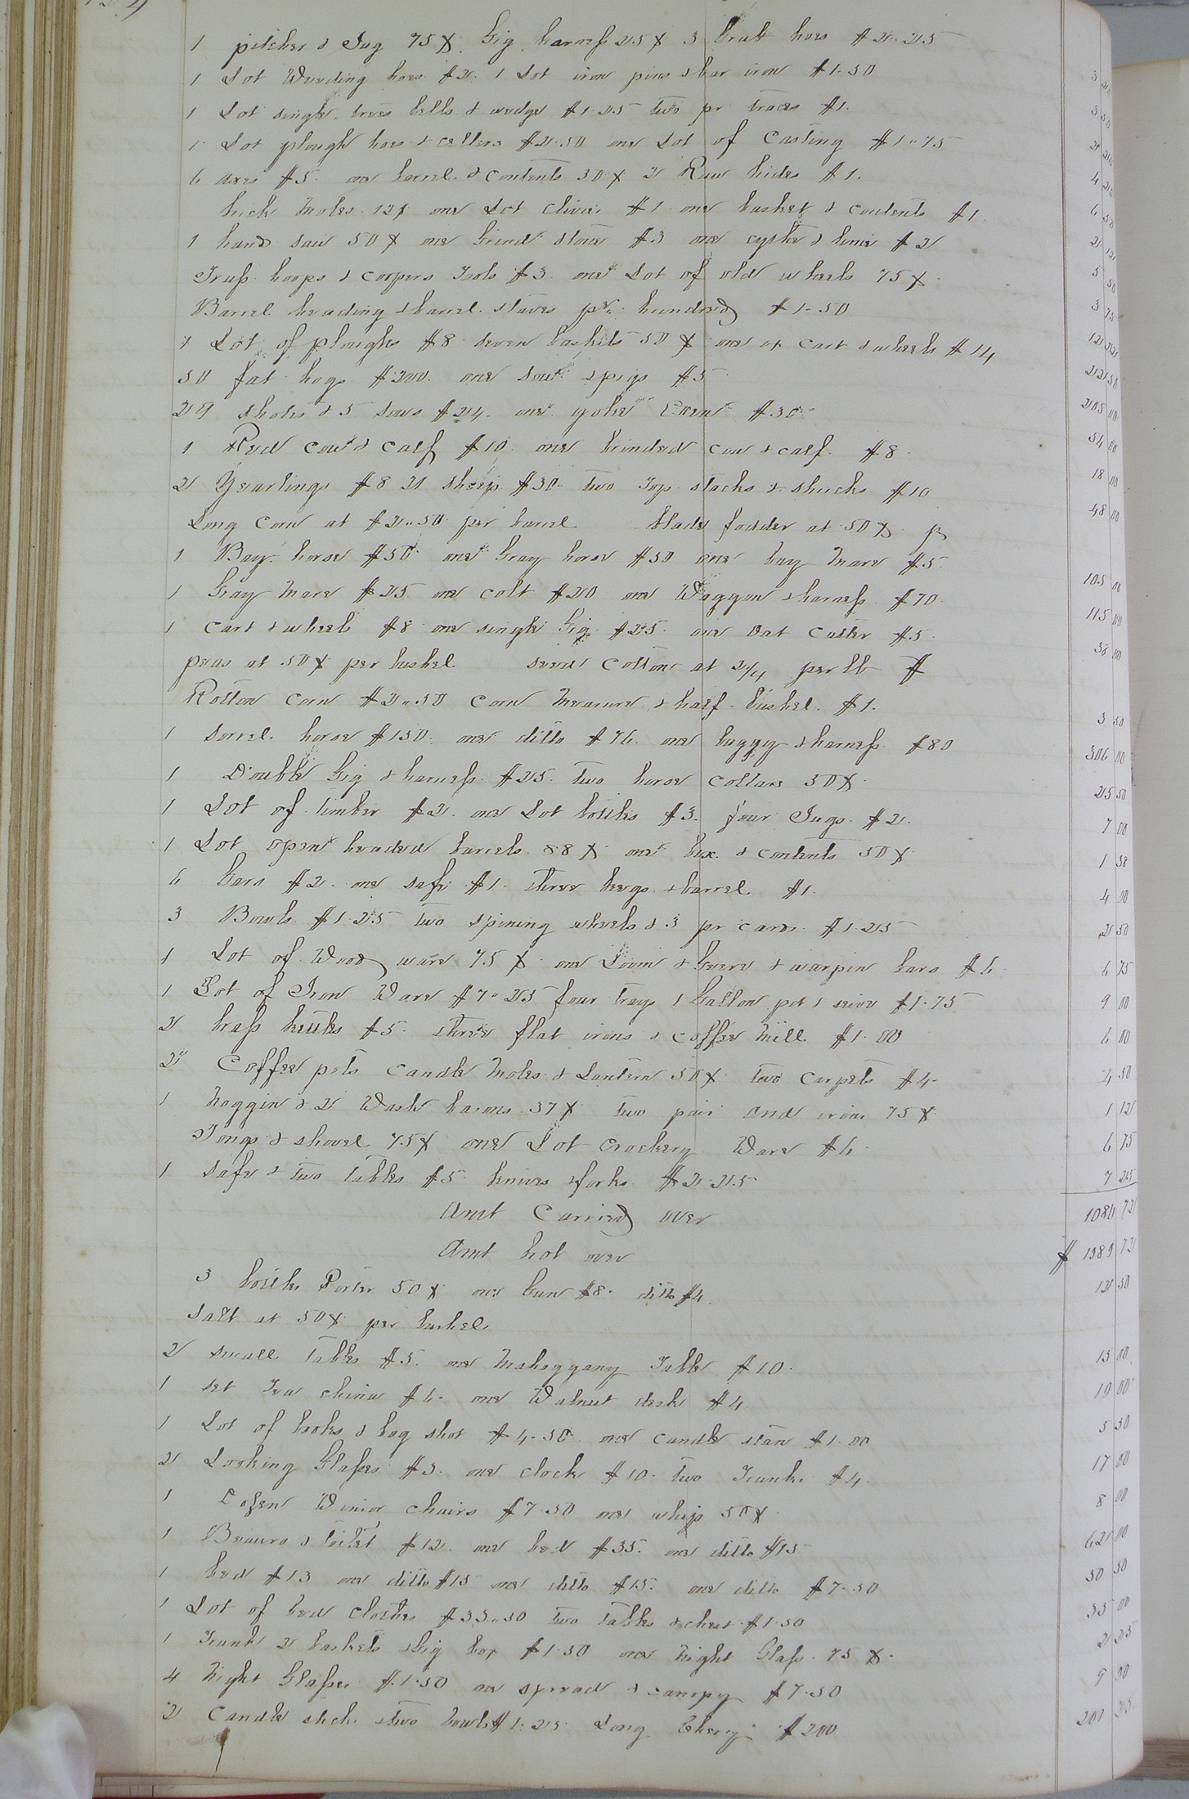 1 pitcher & Jug 75 ¢ Gig harness 25 ¢ 3 Grub hoes $2.25
1 Lot Weeding hoes $2. 1 Lot iron pins & bar iron $1.50 3
1 Lot single trees bells & wedge $1.25 two pr traces $1. 3 50
1 Lot plough hoes & $2.50 one Lot of Casting $1.75
6 axes $5. one barrel & contents 50 ¢ 2 Raw hides $1. 4
one Lot $1 one basket & contents $1 6 50
1 hand saw 50 ¢ one Grind stone $3 one & $2 2
Truss hoops & coopers Tools $3 one Lot of old wheels 75 ¢ 5 50
Barrel heading & barrel staves pr. hundred $1.50 3 75
1 Lot of ploughs $8 seven baskets 50 ¢ one ox cart & wheels $14
50 fat hogs $200. one sow & pigs $5 22 50
29 shotes & 5 sows $24. one yoke Oxen $30 205 00
1 Red cow & calf $10 one brinded cow & calf $8 54 00
2 Yearlings $8 21 sheep $30 two Top stacks & shucks $10 18 00
Long corn at $2.50 per barrel blade fodder at 50 ¢ p 48 00
1 Bay horse $50 one Gray horse $50 one bay Mare $5
1 Gray Mare $25 one colt $20 one Waggon & harness $70 105 00
1 cart & wheels $8 one single Gig $25 one $5 115 00
peas at 50 ¢ per bushel seed cotton at 2/4 per lb $ 38 00
Rotton corn $2.50 corn Measure & half bushel $1.
1 sorrel horse $150 one ditto $76 one buggy & harness $80 3 50
1 Double Gig & harness $25. two horse collars 50 ¢ 306 00
1 Lot of timber $2. one Lot bottles $3. four Jugs $2. 25 50
1 Lot open headed barrels 88 ¢ one box & contents 50 ¢ 7 00
6 bars $2 one safe $1. three kegs & barrel $1 1 38
3 Bowls $1.25 two spinning wheels & 3 pr cards $1.25 4 00
1 Lot of Wood ware 75 ¢ one Loom & Geere & warpin bars $6 2 50
1 Lot of Iron Ware $7.25 four trays 1 Gallon pot & $1.75 6 75
2 brass kettles $5. three flat irons & coffee Mill $1.00 9 00
2 Coffee pots candle Moles & Lantern 50 ¢ two carpets $4. 6 00
1 Noggin & 2 Wash basons 37 ¢ two pair And irons 75 ¢ 4 50
Tongs & shovel 75 ¢ one Lot Crockery Ware $6 1 12
1 safe & two tables $5 knives & forks $2.25 6 75
7 25
Amt Carried over 1086 72
Amt bot over $ 1383 72
3 bottles Porter 50 ¢ one Gun $8. ditto $4 12 50
Salt at 50 ¢ per bushel
2 small Tables $5. one Mahoggany Table $10. 15 00
1 set Tea china $6. one Walnut desk $4 10 00
1 Lot of books & bag shot $4.50 one candle stan $1.00 5 50
2 Looking Glasses $3. one clock $10. two Trunks $4. 17 00
1 Dozen Winsor chairs $7.50 one whip 50 ¢ 8 00
1 Beauro & toilet $12. one bed $35. one ditto $15 62 00
1 bed $13 one ditto $15 one ditto $15. one ditto $7.50 50 50
1 Lot of bed clothes $33.50 two tables & chest $1.50 35 00
1 Trunk 2 baskets & big box $1.50 one Night Glass 75 ¢ 2 25
4 Night Glasses $1.50 one spread & canopy $7.50 9 00
2 Candle stick & two bowls $1.25 Long $200 201 25